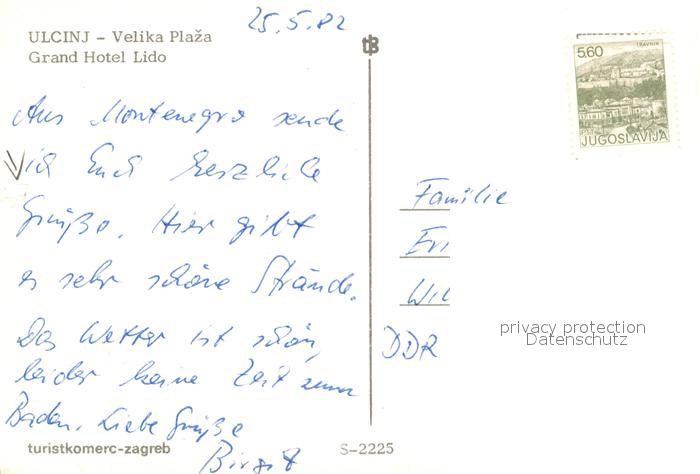 25.5.82
ULCINJ – Velika Plaža
Grand Hotel Lido
Aus Montenegro sende
ich Euch herzliche
Grüße. Hier gibt
es sehr schöne Strände.
Das Wetter ist schön,
leider keine Zeit zum
Baden. Liebe Grüße
Birgit
turistkomerc-zagreb
S-2225
tB
5.60
TRAVNIK
JUGOSLAVIJA
Familie
DDR
privacy protection
Datenschutz